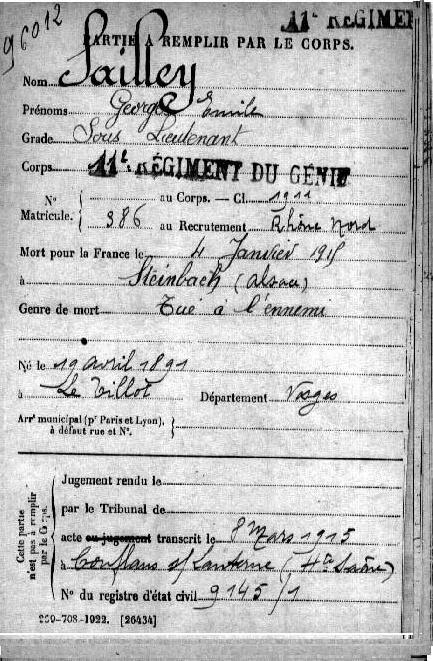 96012
11e RÉGIMEN
PARTIE A REMPLIR PAR LE CORPS.
Nom Sailley
Prénoms Georges Emile
Grade Sous Lieutenant
Corps 11e RÉGIMENT DU GÉNIE
N° au Corps. — Cl. 1911
Matricule. 986 au Recrutement Rhône Nord
Mort pour la France le 4 Janvier 1915
à Steinbach (Alsace)
Genre de mort Tué à l'ennemi
Né le 19 avril 1891
à Le Tillot Département Vosges
Arrt municipal (pr Paris et Lyon),
à défaut rue et N°.
Cette partie
n'est pas à remplir
par le Corps.
Jugement rendu le
par le Tribunal de
acte ou jugement transcrit le 8 Mars 1915
à Conflans s/ Lanterne (Hte Saône)
N° du registre d'état civil 9145/1
260-708-1922. [26434]